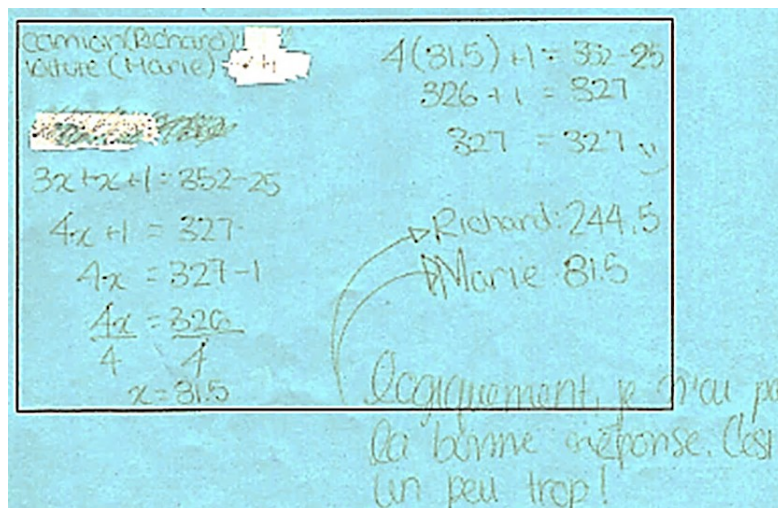 camion (Richard)
voiture (Marie)
3x+x+1=352-25
4x+1 = 327
4x = 327-1
4x = 326
4 4
x=81.5
4(81.5)+1=352-25
326+1 = 327
327 = 327
Richard: 244.5
Marie: 81.5
Logiquement, je n'ai
la bonne réponse. C'est
un peu trop!